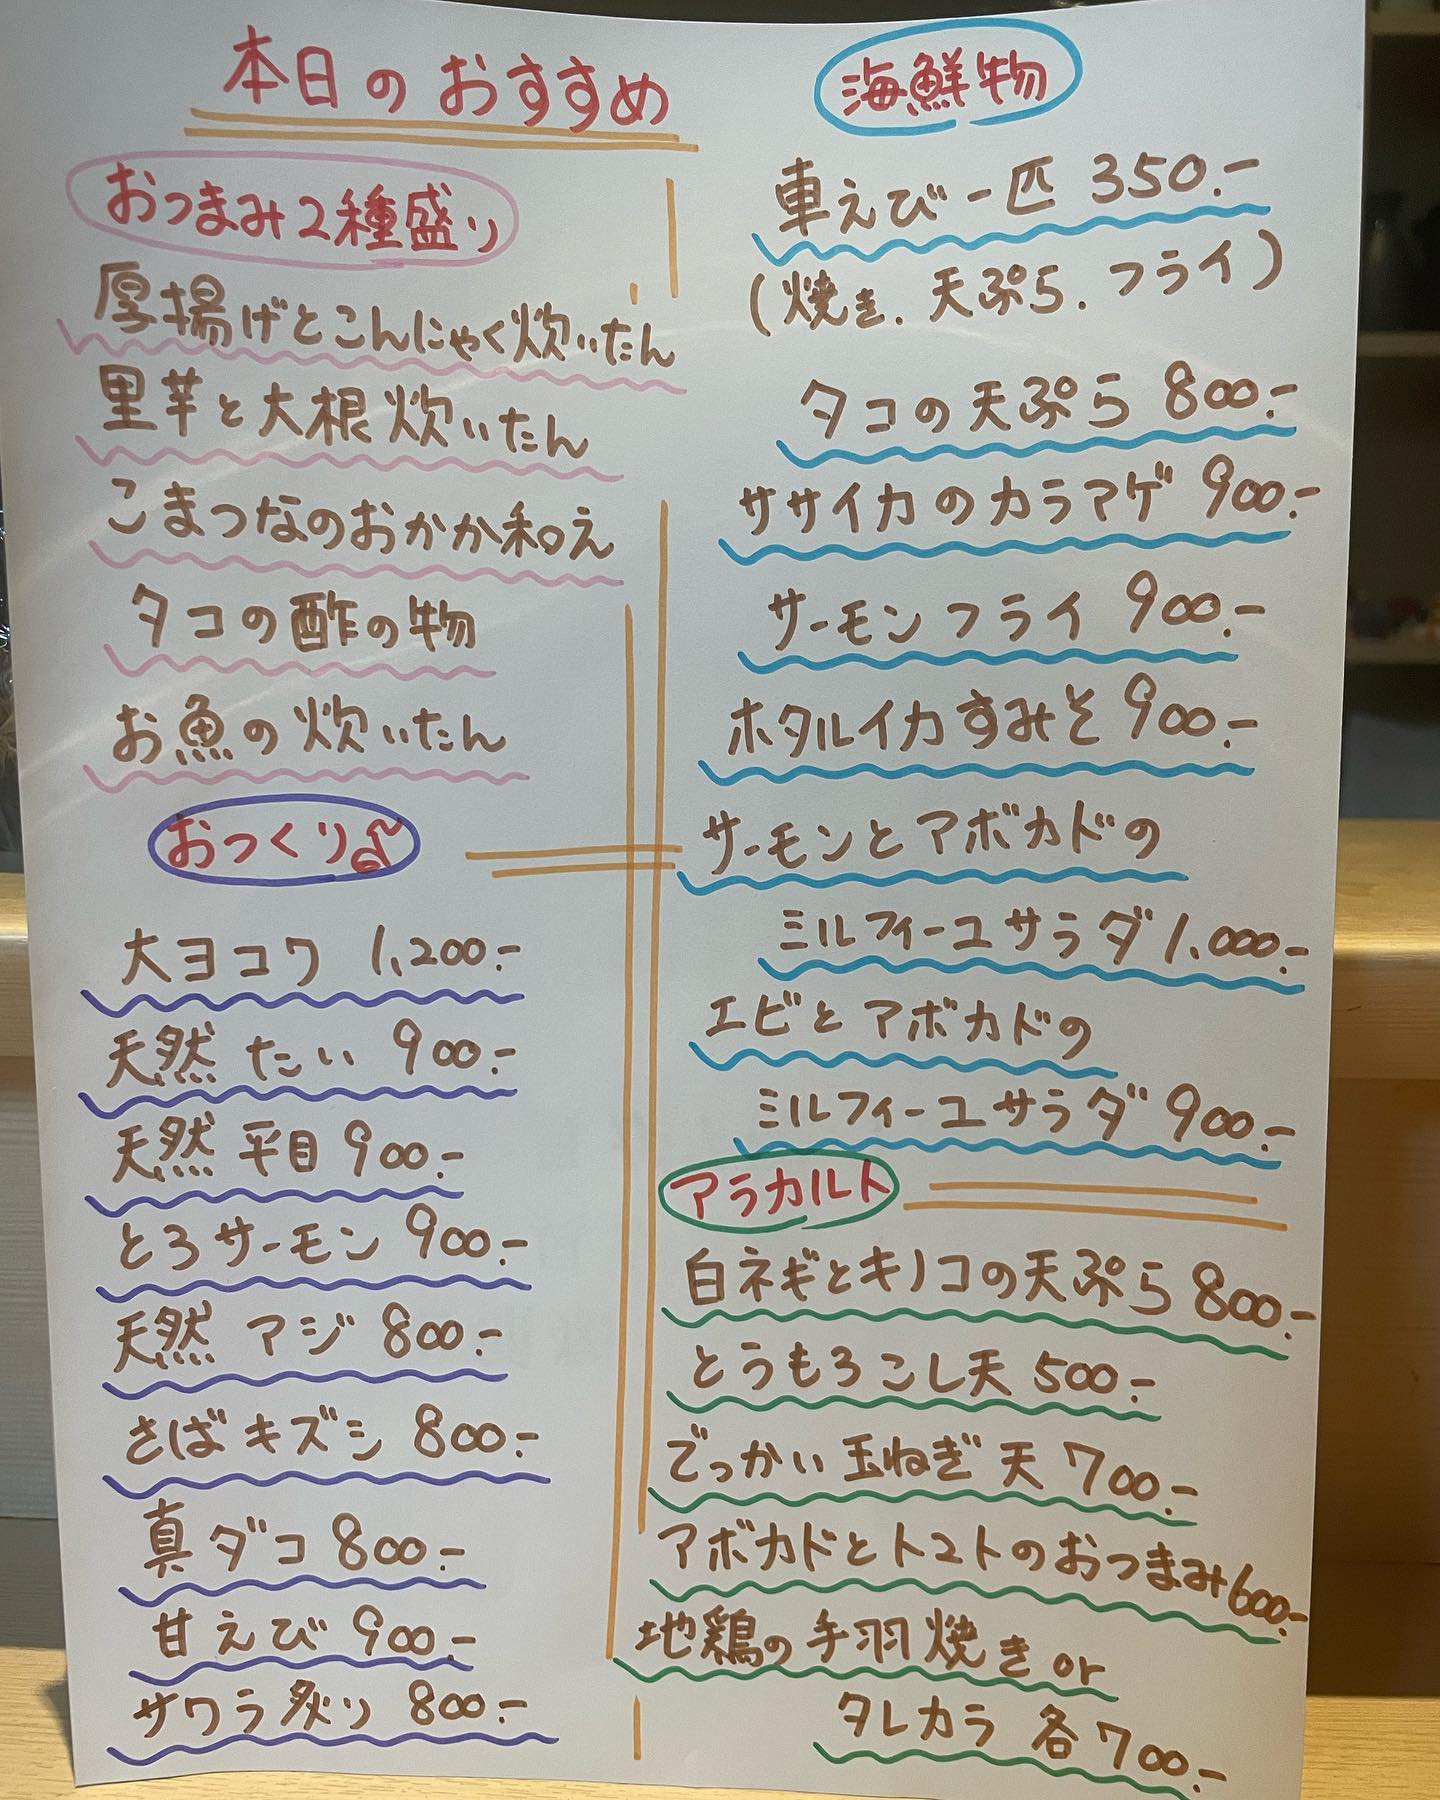 本日のおすすめ
おつまみ2種盛り
厚揚げとこんにゃく炊いたん
里芋と大根炊いたん
こまつなのおかか和え
タコの酢の物
お魚の炊いたん
おつくり
大ヨコワ 1,200.-
天然 たい 900.-
天然 平目 900.-
とろサーモン 900.-
天然 アジ 800.-
さばキズシ 800.-
真ダコ 800.-
甘えび 900.-
サワラ炙り 800.-
海鮮物
車えび一匹 350.-
(焼き、天ぷら、フライ)
タコの天ぷら 800.-
ササイカのカラアゲ 900.-
サーモンフライ 900.-
ホタルイカすみそ 900.-
サーモンとアボカドの
ミルフィーユサラダ 1,000.-
エビとアボカドの
ミルフィーユサラダ 900.-
アラカルト
白ネギとキノコの天ぷら 800.-
とうもろこし天 500.-
でっかい玉ねぎ天 700.-
アボカドとトマトのおつまみ 600.-
地鶏の手羽焼き or
タレカラ 各700.-